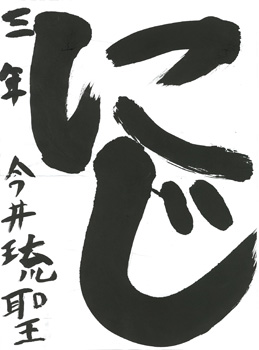 にじ
三年 今井琉聖